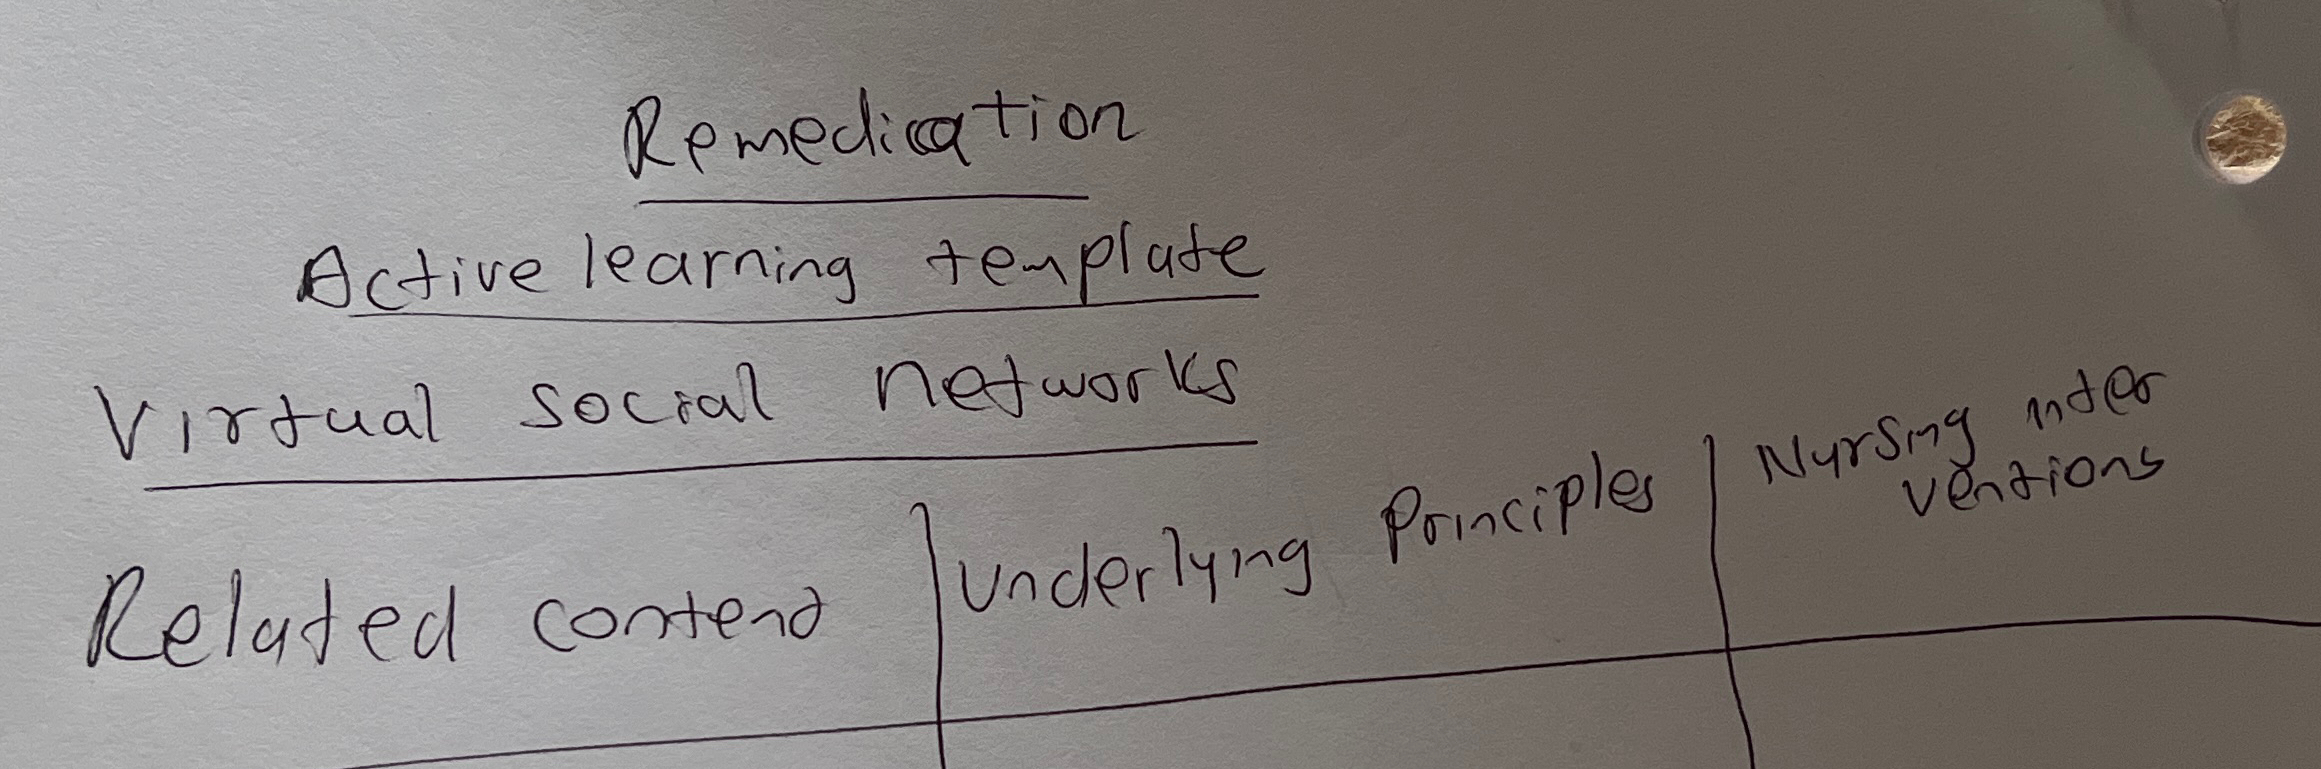 Remediation
Active learning template
Virtual social networks
Related content
Underlying Principles
Nursing inter
ventions